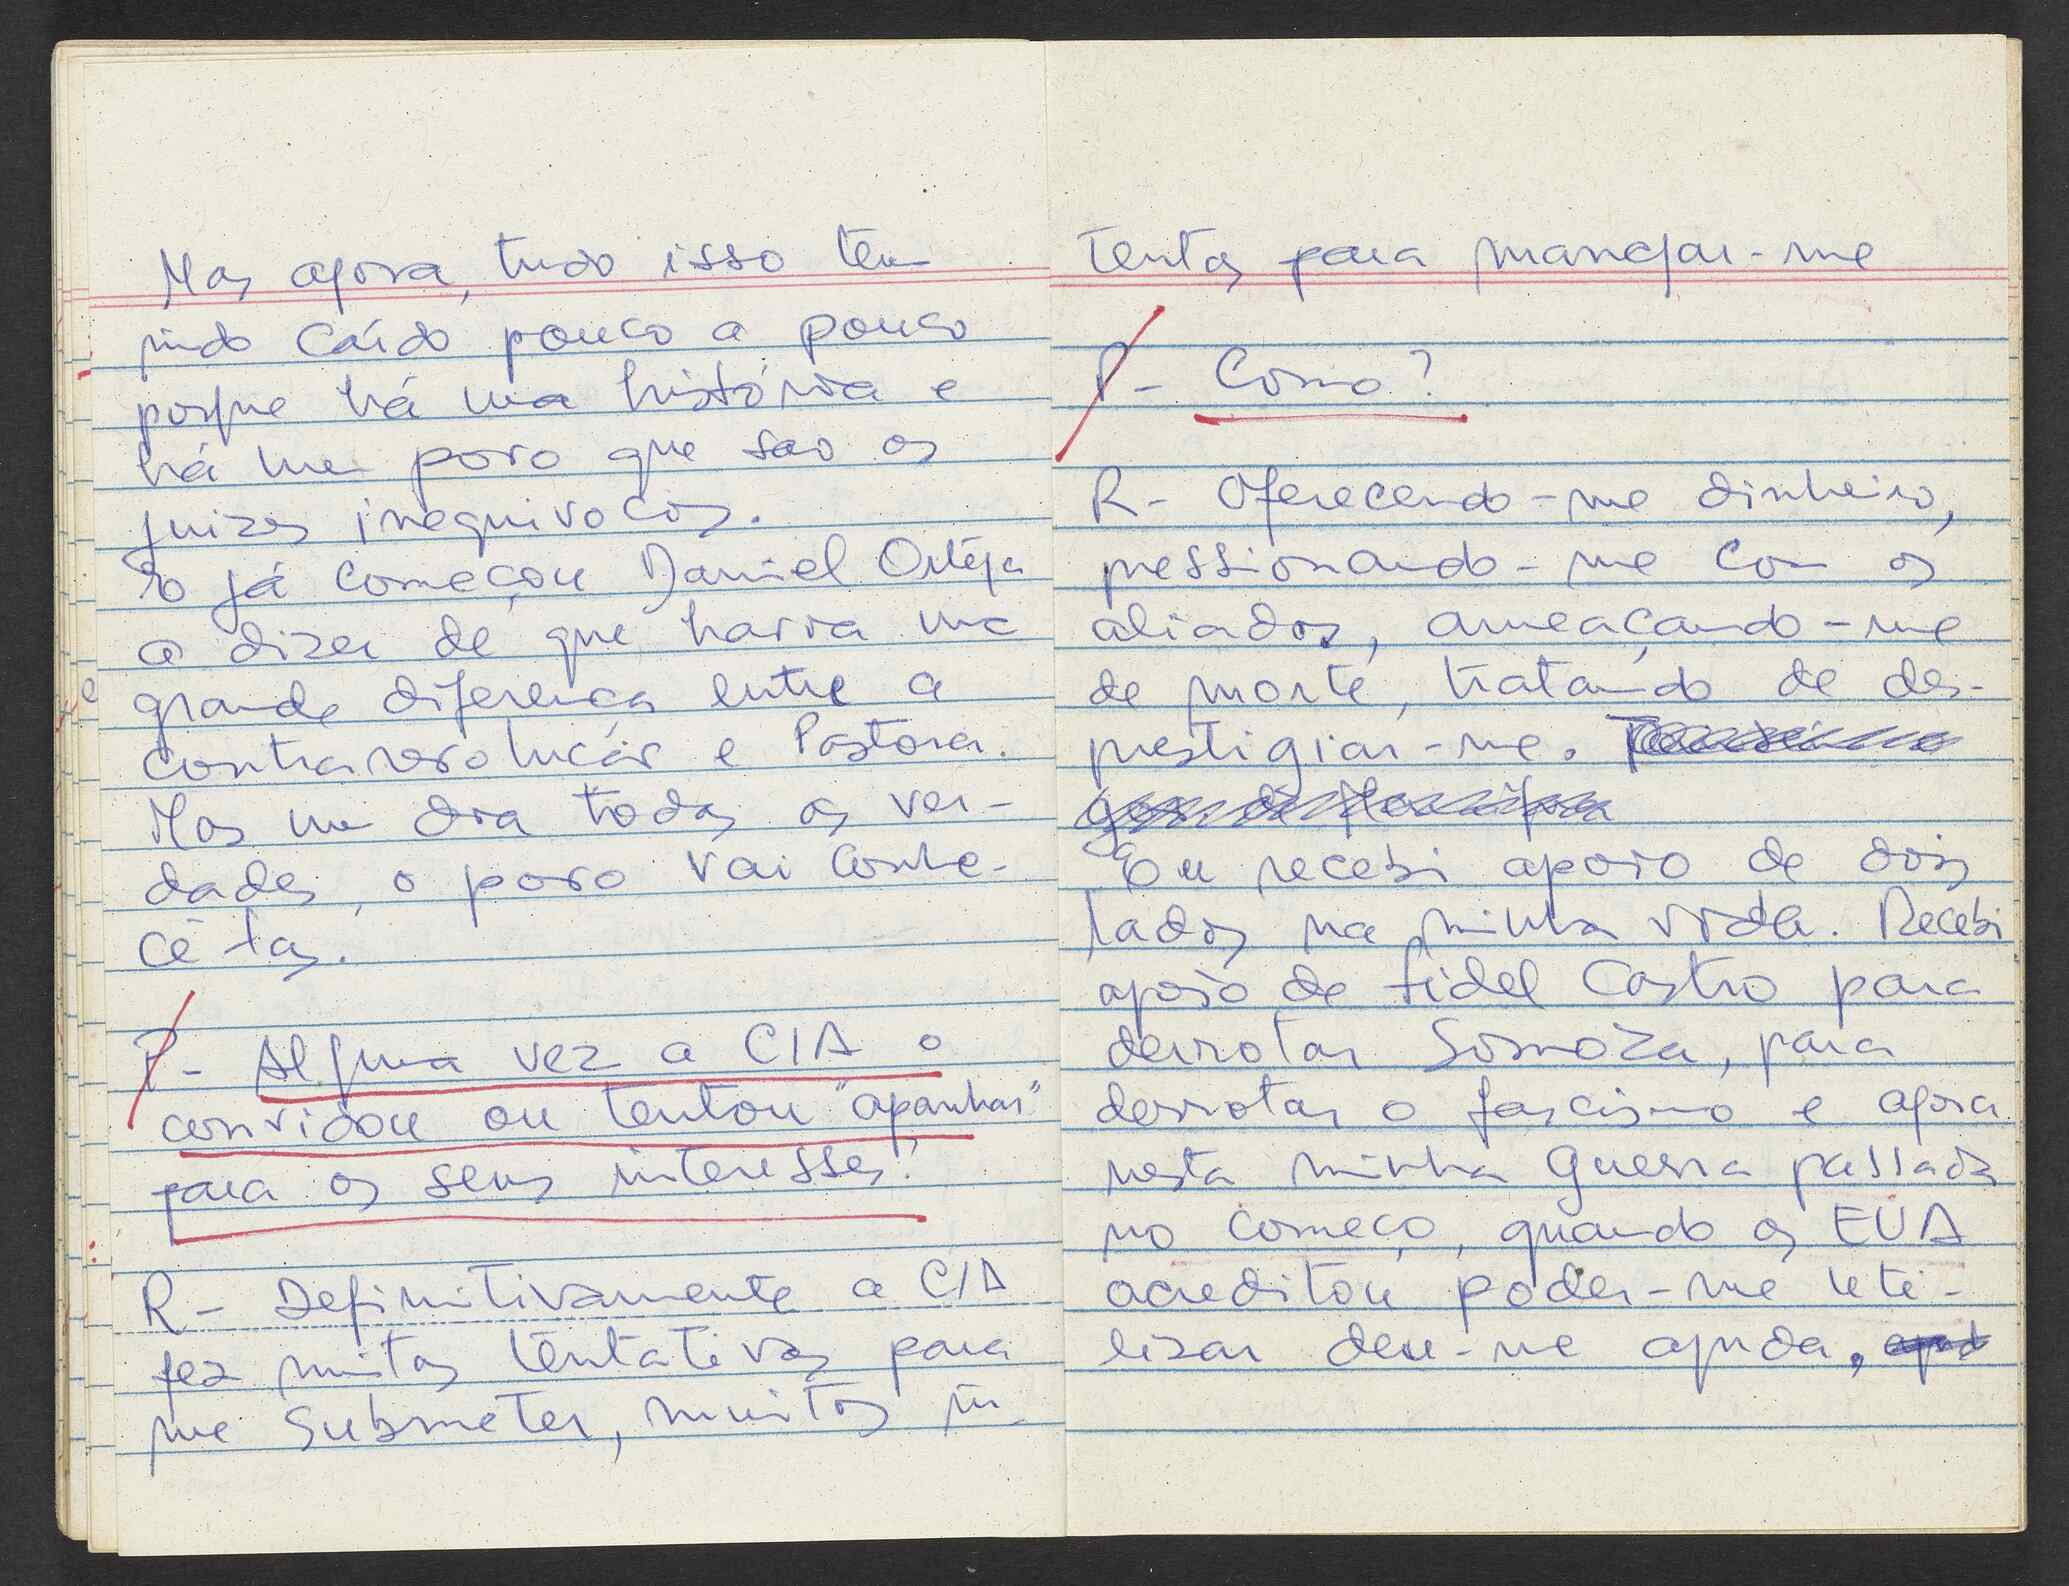 Mas agora, tudo isso tem
vindo caído pouco a pouco
porque há uma história e
há um povo que são os
juizes inequivocos.
E já começou Daniel Ortega
a dizer de que havia uma
grande diferença entre a
contrarevolução e Pastora.
Mas um dia todas as ver-
dades, o povo vai conhe-
cê-las.
P- Alguma vez a CIA o
convidou ou tentou "apanhar"
para os seus interesses?
R- Definitivamente a CIA
fez muitas tentativas para
me submeter, muitos in-
tentos para manejar-me
P- Como?
R- Oferecendo-me dinheiro,
pressionando-me com os
aliados, ameaçando-me
de morte, tratando de des-
prestigiar-me.
Eu recebi apoio de dois
lados na minha vida. Recebi
apoio de Fidel Castro para
derrotar Somoza, para
derrotar o fascismo e agora
nesta minha guerra passada
no começo, quando os EUA
acreditou poder-me uti-
lizar deu-me ajuda,